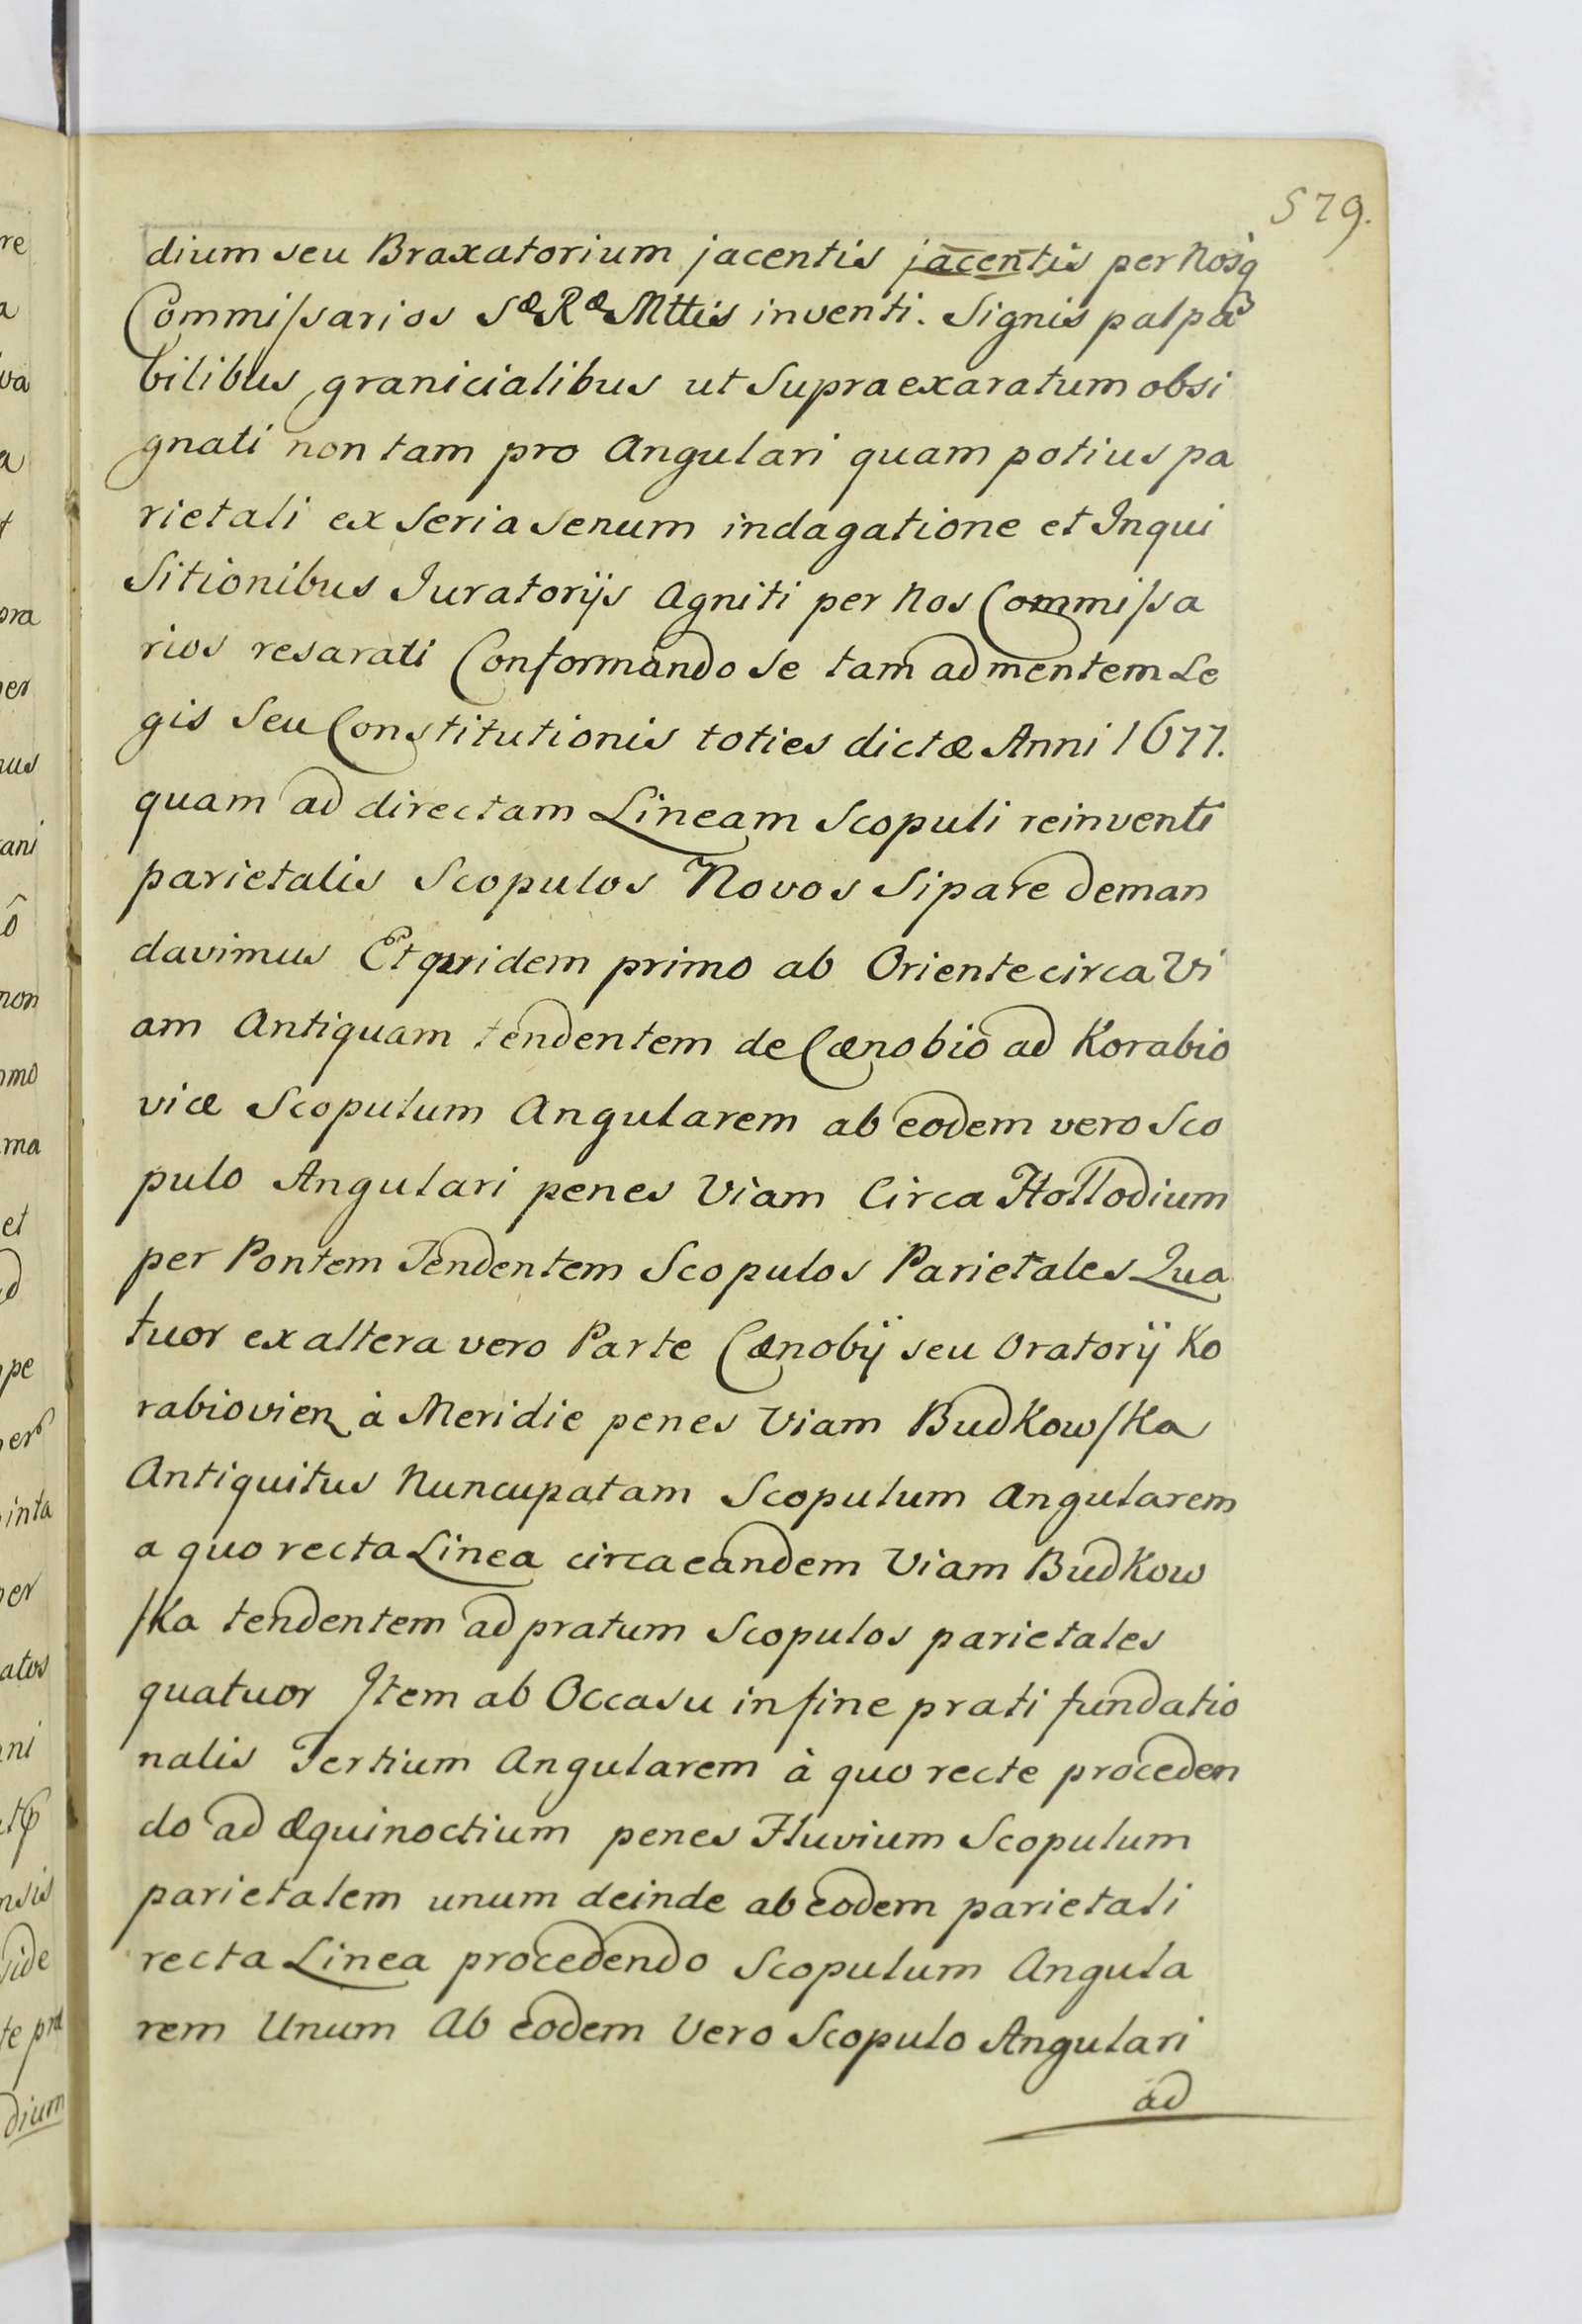 579.
dium seu Braxatorium jacentis jacentis per Nosq
Commissarios Sæ Ræ Mttis inventi. Signis palpa
bilibus granicialibus ut Supra exaratum obsi
gnati non tam pro Angulari quam potius pa
rietali ex Seria Senum indagatione et Inqui
Sitionibus Juratorijs Agniti per Nos Commissa
rios resarati Conformando Se tam ad mentem Le
gis Seu Constitutionis toties dictæ Anni 1677.
quam ad directam Lineam Scopuli reinventi
parietalis Scopulos Novos Sipare deman
davimus Et quidem primo ab Oriente circa Vi
am Antiquam tendentem de Cænobio ad Korabio
vice Scopulum Angularem ab eodem vero Sco
pulo Angulari penes Viam Circa Hollodium
per Pontem Tendentem Scopulos Parietales Qua
tuor ex altera vero Parte Cænobij seu Oratorij Ko
rabiovien à Meridie penes Viam Budkowska
Antiquitus Nuncupatam Scopulum Angularem
a quo recta Linea circa eandem Viam Budkow
ska tendentem ad pratum Scopulos parietales
quatuor Item ab Occasu in fine prati fundatio
nalis Tertium Angularem à quo recte proceden
do ad Æquinoctium penes Fluvium Scopulum
parietalem unum deinde ab eodem parietali
recta Linea procedendo Scopulum Angula
rem Unum Ab eodem Vero Scopulo Angulari
ad